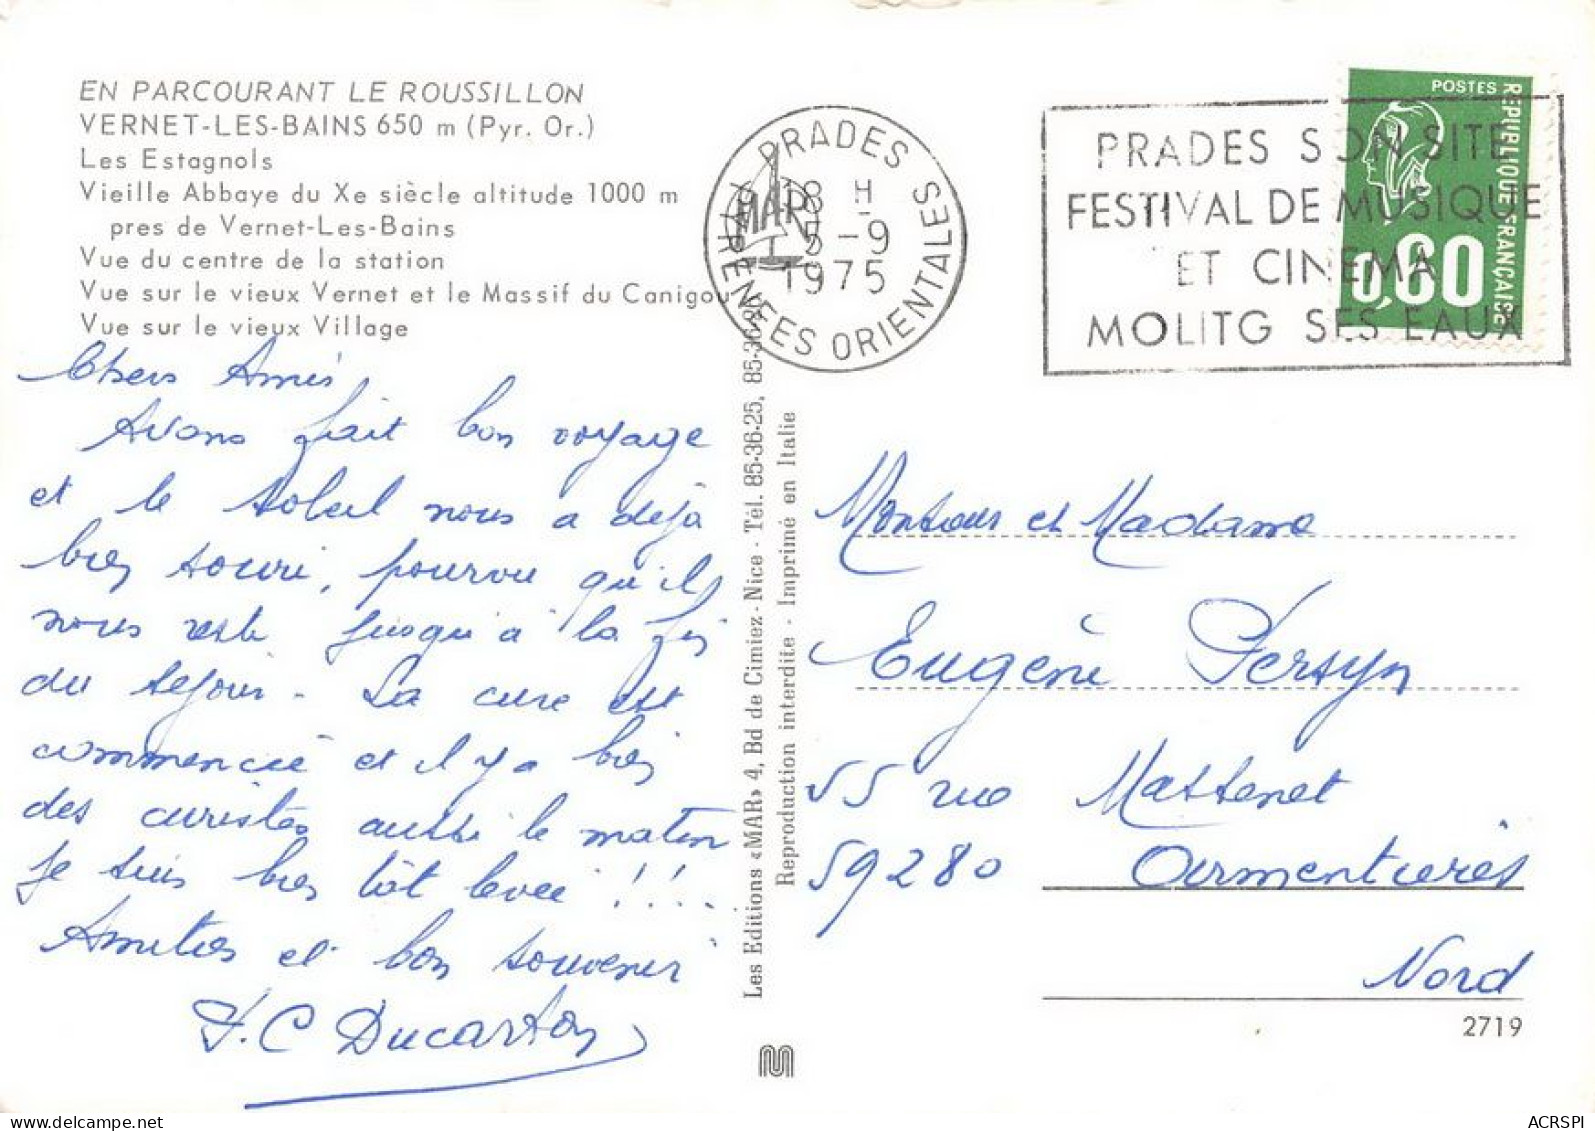 EN PARCOURANT LE ROUSSILLON
VERNET-LES-BAINS 650 m (Pyr. Or.)
Les Estagnols
Vieille Abbaye du Xe siècle altitude 1000 m
pres de Vernet-Les-Bains
Vue du centre de la station
Vue sur le vieux Vernet et le Massif du Canigou
Vue sur le vieux Village
Chers Amis
Avons fait bon voyage
et le soleil nous a déjà
bien souri, pourvu qu'il
nous reste jusqu'à la fin
du séjour - La cure est
commencée et il y a bien
des curistes aussi le matin
je suis bien tôt levée !!!..
Amitiés et bon souvenir
J.C Ducarton
Les Editions «MAR» 4, Bd de Cimiez - Nice - Tél. 85-36-25,
Reproduction interdite - Imprimé en Italie
MAR
PRADES
18 H
5-9
1975
PYRENEES ORIENTALES
PRADES SON SITE
FESTIVAL DE MUSIQUE
ET CINEMA
MOLITG SES EAUX
POSTES
REPUBLIQUE FRANÇAISE
0,60
Monsieur et Madame
Eugène Persyn
55 rue Massenet
59280 Armentières
Nord
2719
ACRSPI